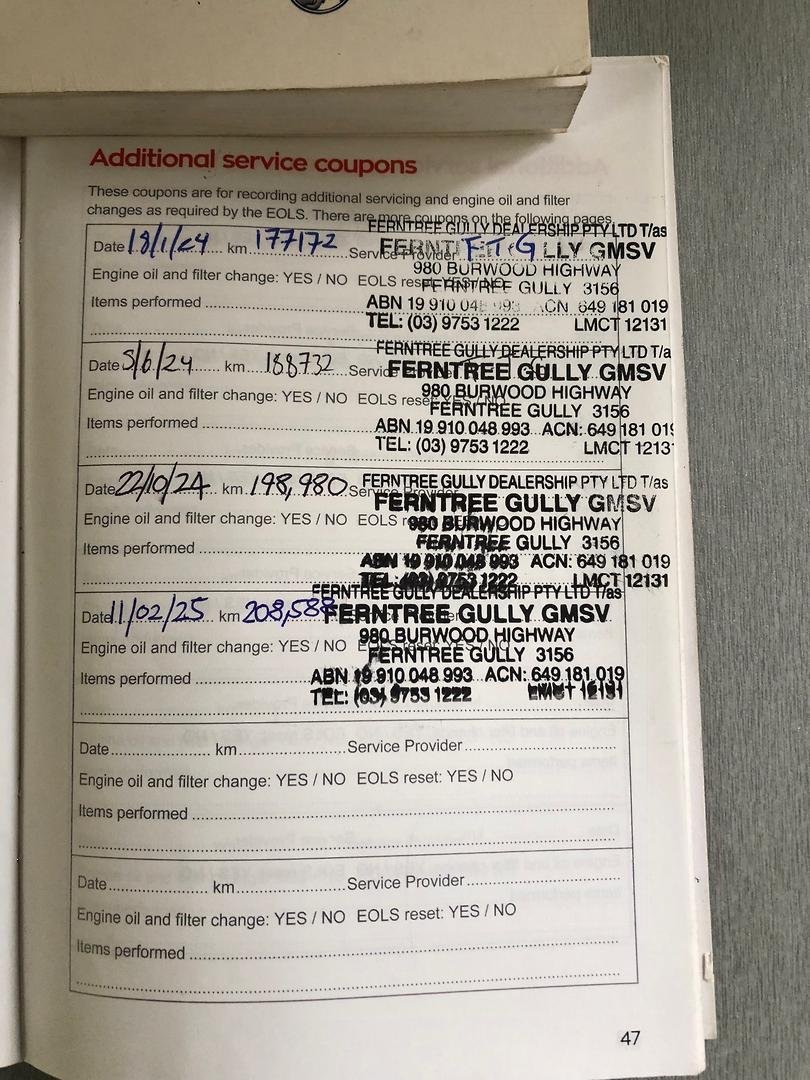 Additional service coupons
These coupons are for recording additional servicing and engine oil and filter
changes as required by the EOLS. There are more coupons on the following pages.
FERNTREE GULLY DEALERSHIP PTY LTD T/as
Date 18/1/24 km 177172 Service Provider FTG
FERNT LLY GMSV
980 BURWOOD HIGHWAY
Engine oil and filter change: YES / NO EOLS reset: YES / NO
FERNTREE GULLY 3156
Items performed
ABN 19 910 048 993 ACN 649 181 019
TEL: (03) 9753 1222 LMCT 12131
FERNTREE GULLY DEALERSHIP PTY LTD T/a
Date 5/6/24 km 188732 Service
FERNTREE GULLY GMSV
980 BURWOOD HIGHWAY
Engine oil and filter change: YES / NO EOLS reset: YES / NO
FERNTREE GULLY 3156
Items performed
ABN 19 910 048 993 ACN: 649 181 019
TEL: (03) 9753 1222 LMCT 1213
FERNTREE GULLY DEALERSHIP PTY LTD T/as
Date 22/10/24 km 198,980 Service Provider
FERNTREE GULLY GMSV
980 BURWOOD HIGHWAY
Engine oil and filter change: YES / NO EOLS
FERNTREE GULLY 3156
Items performed
ABN 19 910 048 993 ACN: 649 181 019
TEL: (03) 9753 1222 LMCT 12131
FERNTREE GULLY DEALERSHIP PTY LTD T/as
Date 11/02/25 km 208,588
FERNTREE GULLY GMSV
980 BURWOOD HIGHWAY
Engine oil and filter change: YES / NO EOLS reset: YES / NO
FERNTREE GULLY 3156
Items performed
ABN 19 910 048 993 ACN: 649 181 019
TEL: (03) 9753 1222 LMCT 12131
Date km Service Provider
Engine oil and filter change: YES / NO EOLS reset: YES / NO
Items performed
Date km Service Provider
Engine oil and filter change: YES / NO EOLS reset: YES / NO
Items performed
47